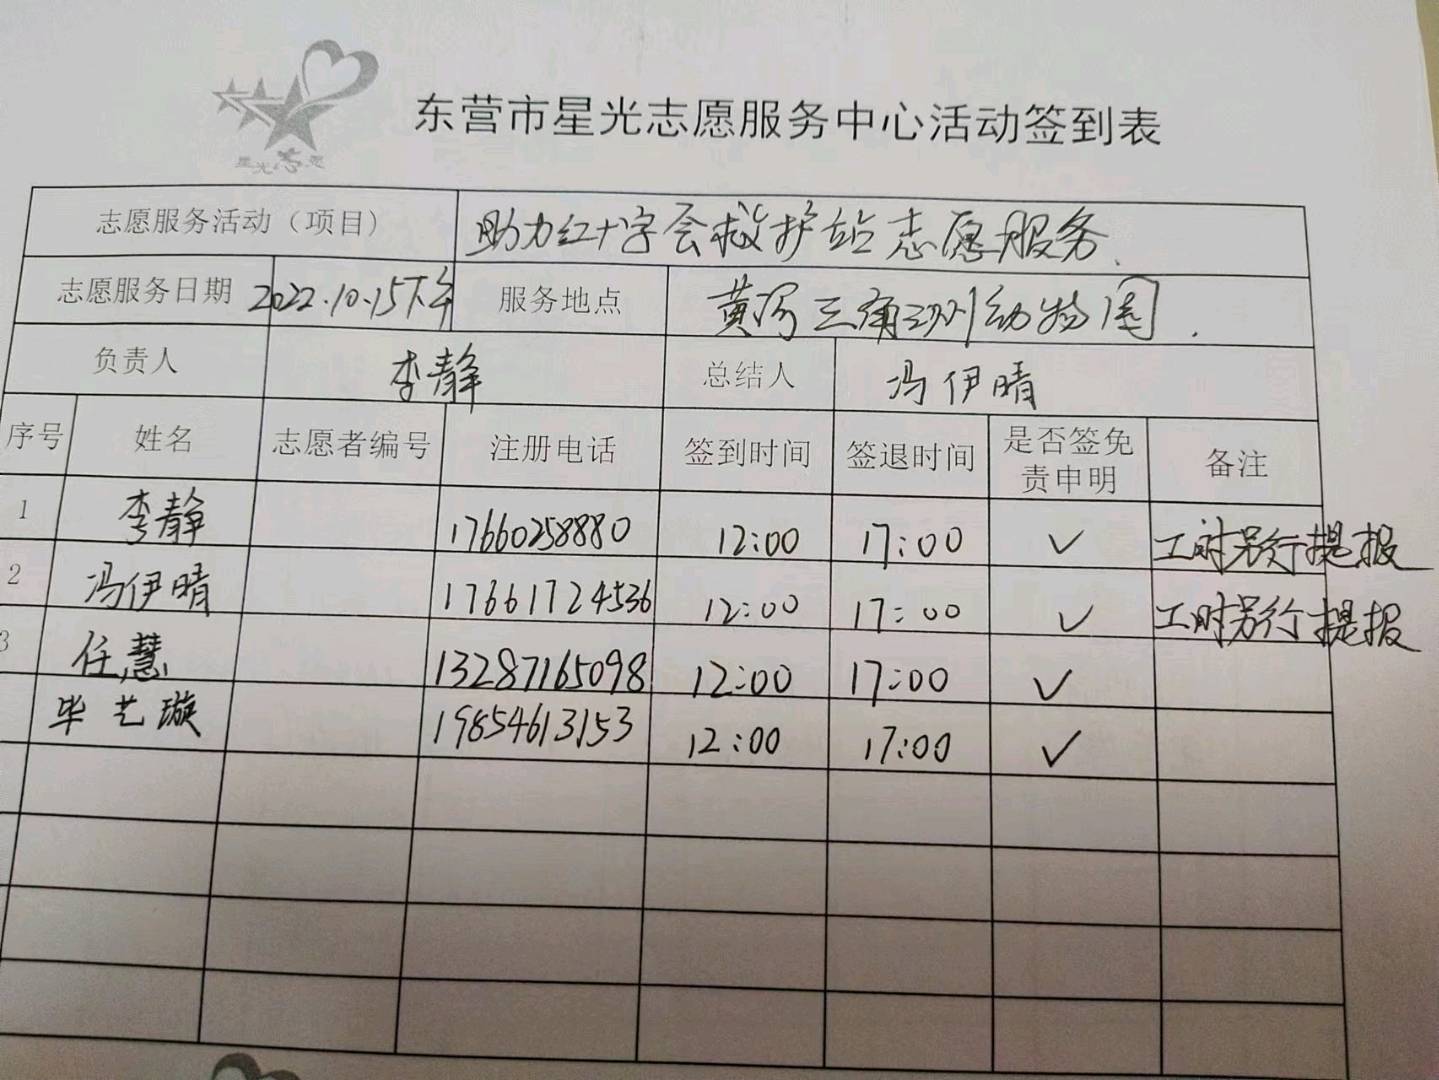 星光志愿
东营市星光志愿服务中心活动签到表
志愿服务活动（项目） 助力红十字会救护站志愿服务.
志愿服务日期 2022.10.15下午 服务地点 黄河三角洲动物园.
负责人 李静 总结人 冯伊晴
序号 姓名 志愿者编号 注册电话 签到时间 签退时间 是否签免责申明 备注
1 李静 17660258880 12:00 17:00 ✓ 工时另行提报
2 冯伊晴 17661724536 12:00 17:00 ✓ 工时另行提报
3 任慧 13287165098 12:00 17:00 ✓
毕艺璇 19854613153 12:00 17:00 ✓